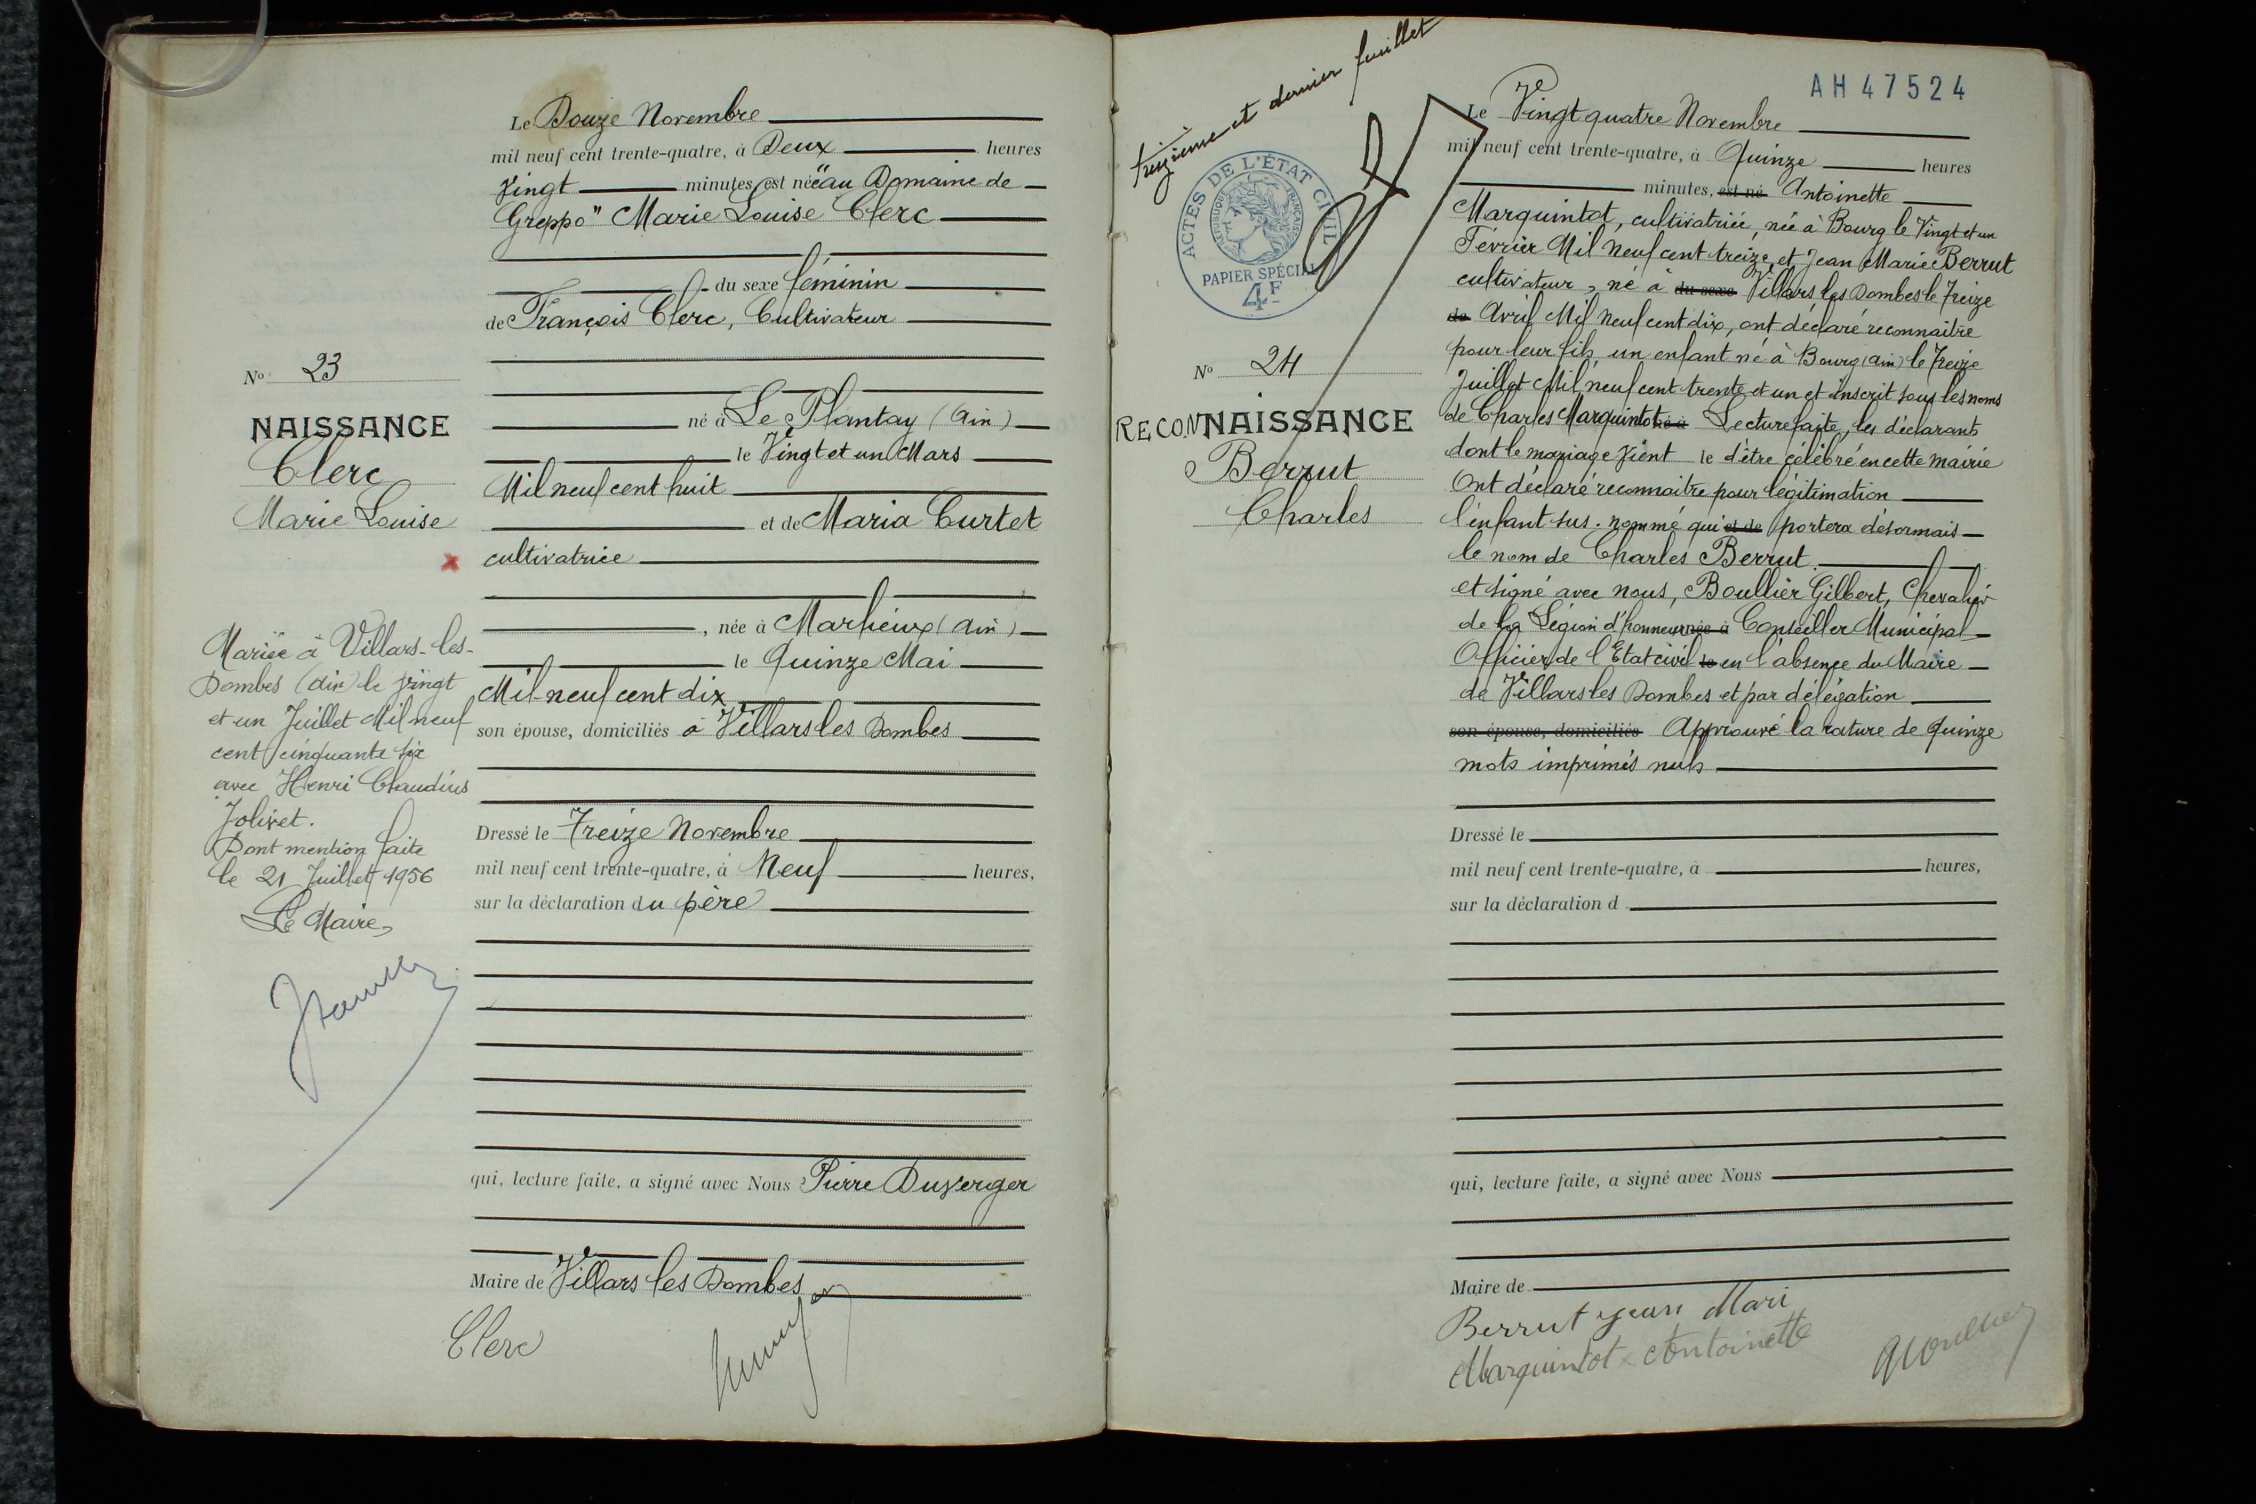 Le Douze Novembre
mil neuf cent trente-quatre, à Deux heures
vingt minutes, est née "au Domaine de
Greppo" Marie Louise Clerc
du sexe féminin
de François Clerc, Cultivateur
né à Le Plantay (Ain)
le Vingt et un Mars
Mil neuf cent huit
et de Maria Curtet
cultivatrice
, née à Marlieux (Ain)
le Quinze Mai
Mil neuf cent dix
son épouse, domiciliés à Villars les Dombes
Dressé le Treize Novembre
mil neuf cent trente-quatre, à Neuf heures,
sur la déclaration du père
qui, lecture faite, a signé avec Nous Pierre Duverger
Maire de Villars les Dombes
Clerc
No 23
NAISSANCE
Clerc
Marie Louise
Mariée à Villars-les-
Dombes (Ain) le vingt
et un Juillet Mil neuf
cent cinquante six
avec Henri Claudius
Jolivet.
Dont mention faite
le 21 Juillet 1956
Le Maire,
treizième et dernier feuillet
ACTES DE L'ÉTAT CIVIL
RÉPUBLIQUE FRANÇAISE
PAPIER SPÉCIAL
4F
No 24
RECONNAISSANCE
Berrut
Charles
AH47524
Le Vingt quatre Novembre
mil neuf cent trente-quatre, à Quinze heures
minutes, est né Antoinette
Marquintot, cultivatrice, née à Bourg le Vingt et un
Février Mil neuf cent treize, et Jean Marie Berrut
cultivateur, né à du sexe Villars les Dombes le Treize
de Avril Mil neuf cent dix, ont déclaré reconnaitre
pour leur fils, un enfant né à Bourg (Ain) le Treize
Juillet Mil neuf cent trente et un et inscrit sous les noms
de Charles Marquintot né à Lecture faite, les déclarants
dont le mariage vient le d'être célébré en cette mairie
Ont déclaré reconnaitre pour légitimation
l'enfant sus-nommé qui et de portera désormais
le nom de Charles Berrut.
et signé avec nous, Boullier Gilbert, Chevalier
de la Légion d'honneur née à Conseiller Municipal
Officier de l'Etat civil le en l'absence du Maire
de Villars les Dombes et par délégation
son épouse, domiciliés Approuvé la rature de quinze
mots imprimés nuls
Dressé le
mil neuf cent trente-quatre, à heures,
sur la déclaration d
qui, lecture faite, a signé avec Nous
Maire de
Berrut jean Mari
Marquintot Antoinette